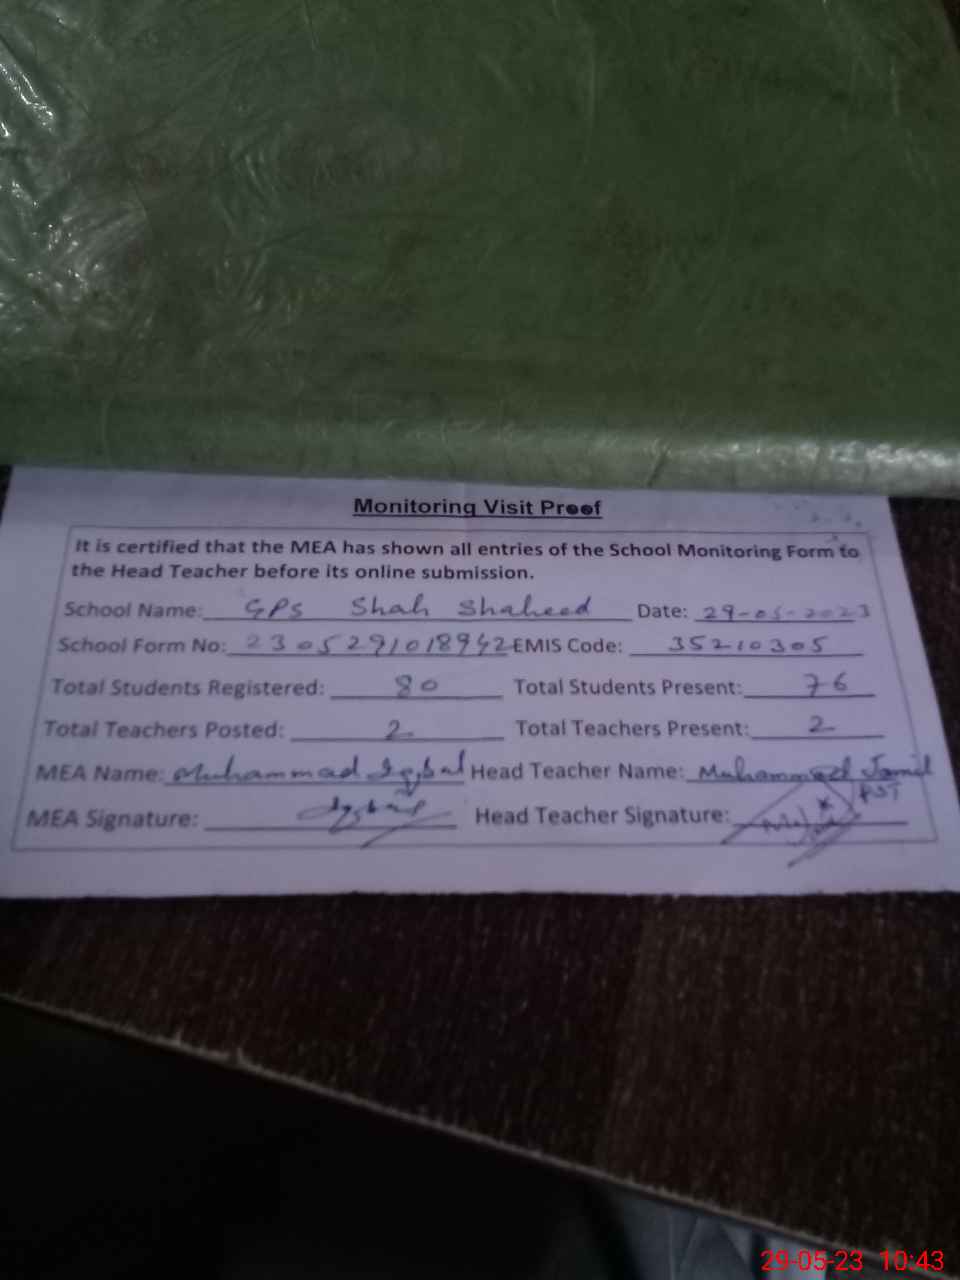 Monitoring Visit Proof
It is certified that the MEA has shown all entries of the School Monitoring Form to
the Head Teacher before its online submission.
School Name: GPS Shah Shaheed Date: 29-05-2023
School Form No: 2305291018942 EMIS Code: 35210305
Total Students Registered: 80 Total Students Present: 76
Total Teachers Posted: 2 Total Teachers Present: 2
MEA Name: Muhammad Iqbal Head Teacher Name: Muhammad Jamil
PST
MEA Signature: Iqbal Head Teacher Signature:
29-05-23 10:43